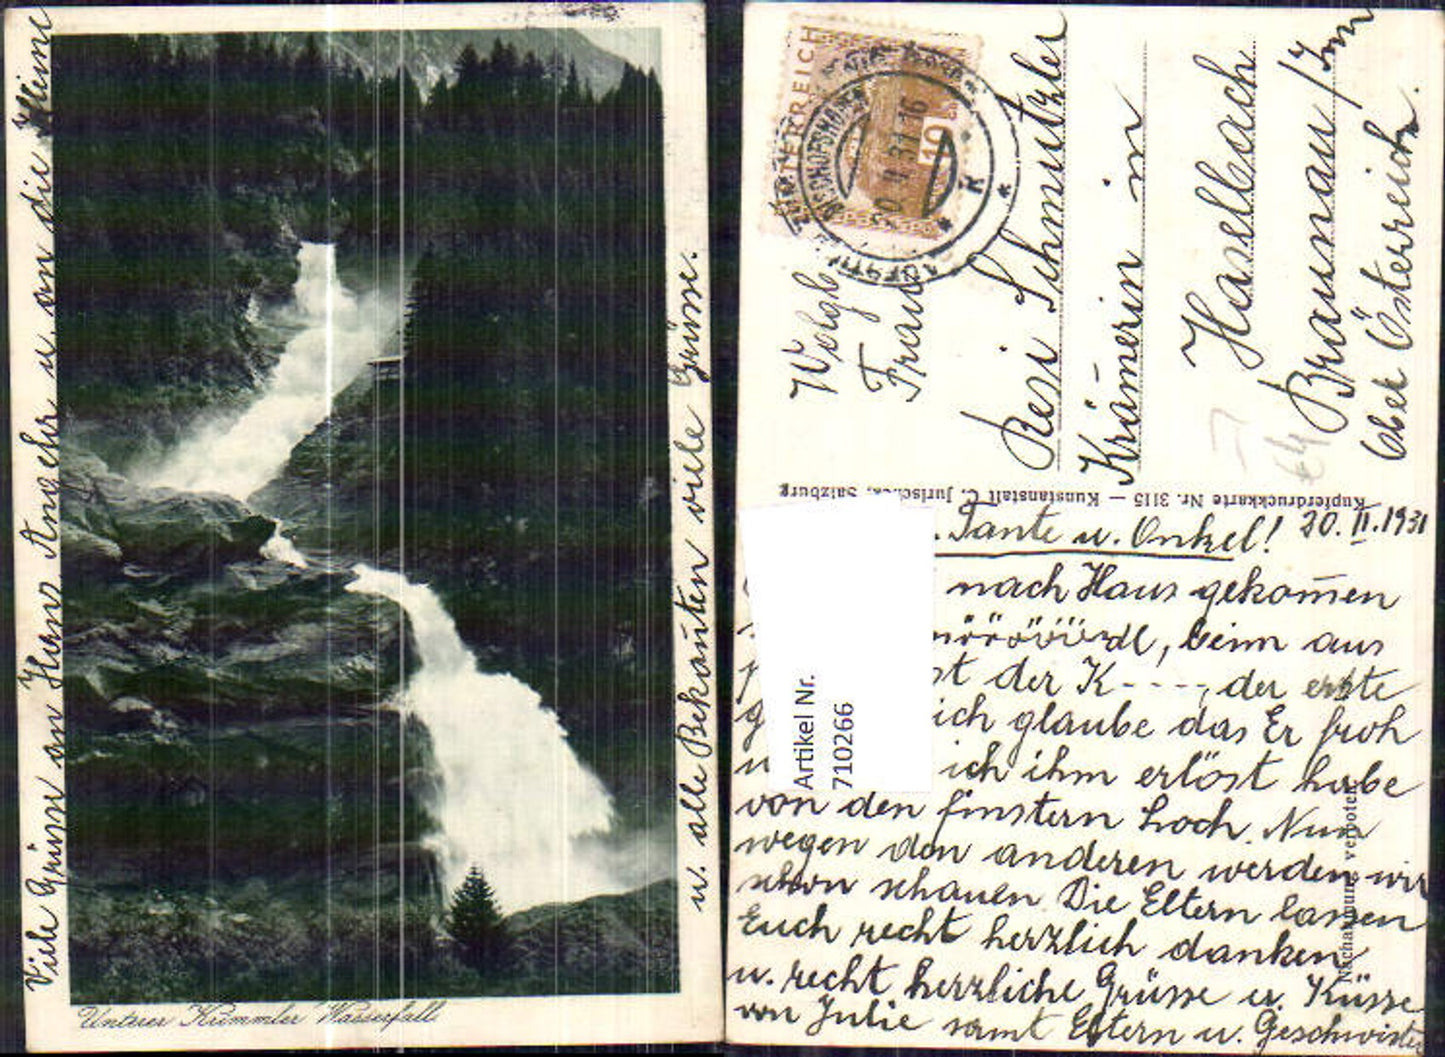 Viele Grüsse an Hans u. an die Kleine
u. alle Bekan̄ten viele Grüsse.
Unterer Krimmler Wasserfall
ÖSTERREICH
10
BISCHOFSHOFEN
Wolgb
Frau
Resi Schmutzler
Krämerin in
Haselbach
Braunau / Inn
Ober Österreich.
Kupferdruckkarte Nr. 3115 — Kunstanstalt C. Jurischek, Salzburg
Nachahmung verboten
Artikel Nr.
710266
. Tante u. Onkel! 20. II. 1931
nach Haus gekom̄en
beim aus
st der K----, der erste
ich glaube das Er froh
ich ihm erlöst habe
von den finstern Loch. Nun
wegen den anderen werden wir
schon schauen Die Eltern lassen
Euch recht herzlich danken
u. recht herzliche Grüsse u. Küsse
von Julie samt Eltern u. Geschwister